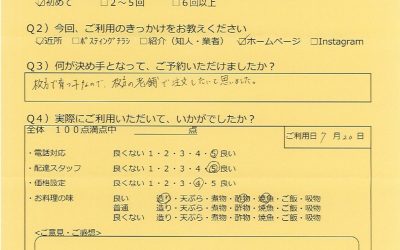 ☑初めて □2～5回 □6回以上
Q2）今回、ご利用のきっかけをお教えください
☑近所 □ポスティングチラシ □紹介（知人・業者） ☑ホームページ □Instagram
Q3）何が決め手となって、ご予約いただけましたか？
で育った子なので、の老舗で注文したいと思いました。
Q4）実際にご利用いただいて、いかがでしたか？
全体 100点満点中 点
ご利用日 7月20日
・電話対応 良くない 1・2・3・4・5 良い
・配達スタッフ 良くない 1・2・3・4・5 良い
・価格設定 良くない 1・2・3・4・5 良い
・お料理の味 良い 造り・天ぷら・煮物・酢物・焼魚・ご飯・吸物
普通 造り・天ぷら・煮物・酢物・焼魚・ご飯・吸物
良くない 造り・天ぷら・煮物・酢物・焼魚・ご飯・吸物
<ご意見・ご感想>